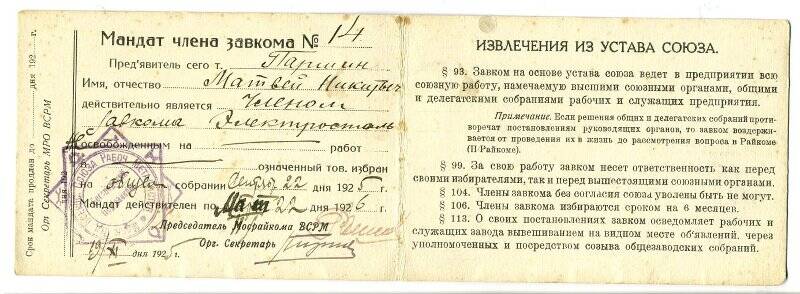 Срок мандата продлен до дня 192 г.
Орг Секретарь МРО ВСРМ
Мандат члена завкома № 14
Пред'явитель сего т. Паршин
Имя, отчество Матвей Никитыч
действительно является Членом
Завкома Электросталь
Не освобожденным на работ
в означенный тов. избран
на общем собрании Сентяб. 22 дня 1925 г.
Мандат действителен по Март 22 дня 1926 г.
Председатель Мосрайкома ВСРМ
Орг. Секретарь
19/XI дня 1925 г.
ИЗВЛЕЧЕНИЯ ИЗ УСТАВА СОЮЗА.
§ 93. Завком на основе устава союза ведет в предприятии всю
союзную работу, намечаемую высшими союзными органами, общими
и делегатскими собраниями рабочих и служащих предприятия.
Примечание. Если решения общих и делегатских собраний противо-
речат постановлениям руководящих органов, то завком воздержи-
вается от проведения их в жизнь до рассмотрения вопроса в Райкоме
(П-Райкоме).
§ 99. За свою работу завком несет ответственность как перед
своими избирателями, так и перед вышестоящими союзными органами.
§ 104. Члены завкома без согласия союза уволены быть не могут.
§ 106. Члены завкома избираются сроком на 6 месяцев.
§ 113. О своих постановлениях завком осведомляет рабочих и
служащих завода вывешиванием на видном месте об'явлений, через
уполномоченных и посредством созыва общезаводских собраний.